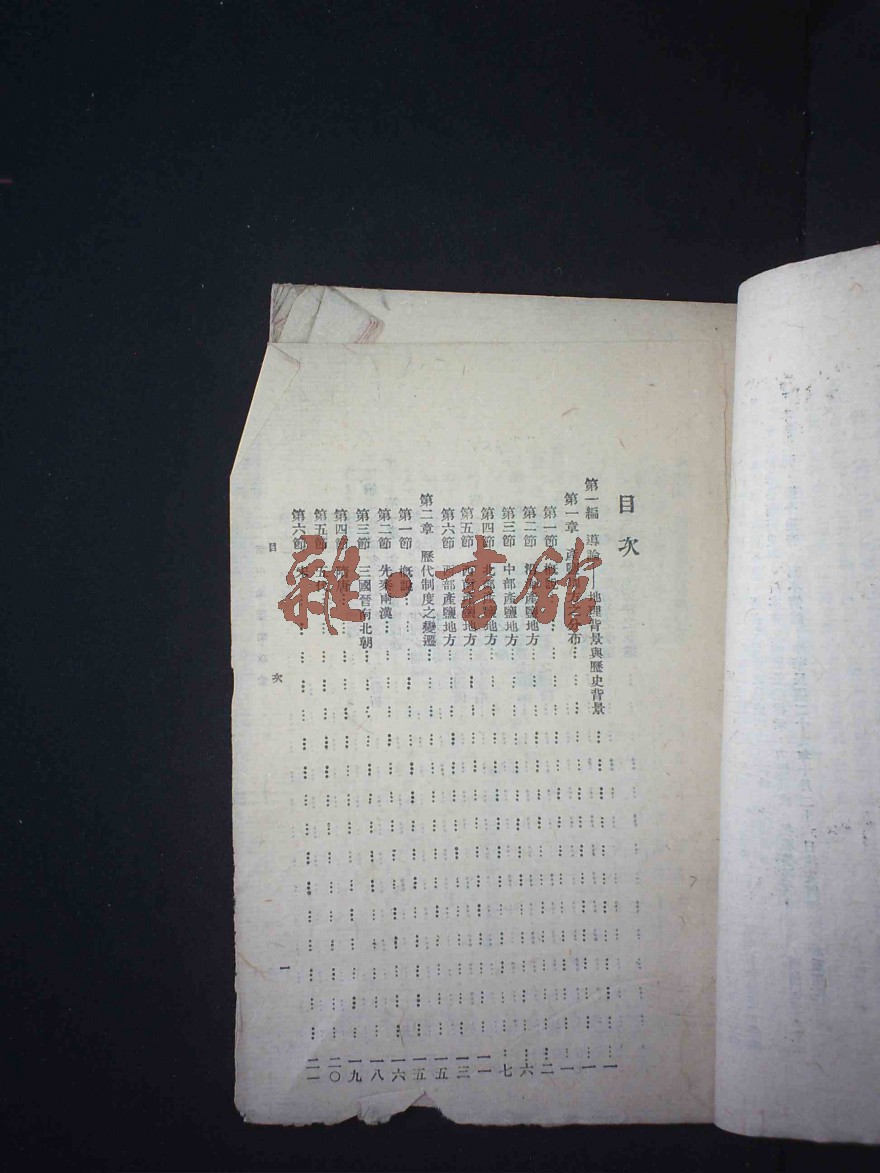 目次
第一編 導論——地理背景與歷史背景 一
第一章 產鹽之分布 一
第一節 概說 一
第二節 產鹽地方 二
第三節 中部產鹽地方 六
第四節 北部產鹽地方 七
第五節 西南產鹽地方 一一
第六節 西部產鹽地方 一三
第二章 歷代制度之變遷 一五
第一節 概說 一五
第二節 先秦兩漢 一六
第三節 三國晉南北朝 一八
第四節 隋唐 一九
第五節 五代 二〇
第六節 宋 二一
目次
一
雜·書館